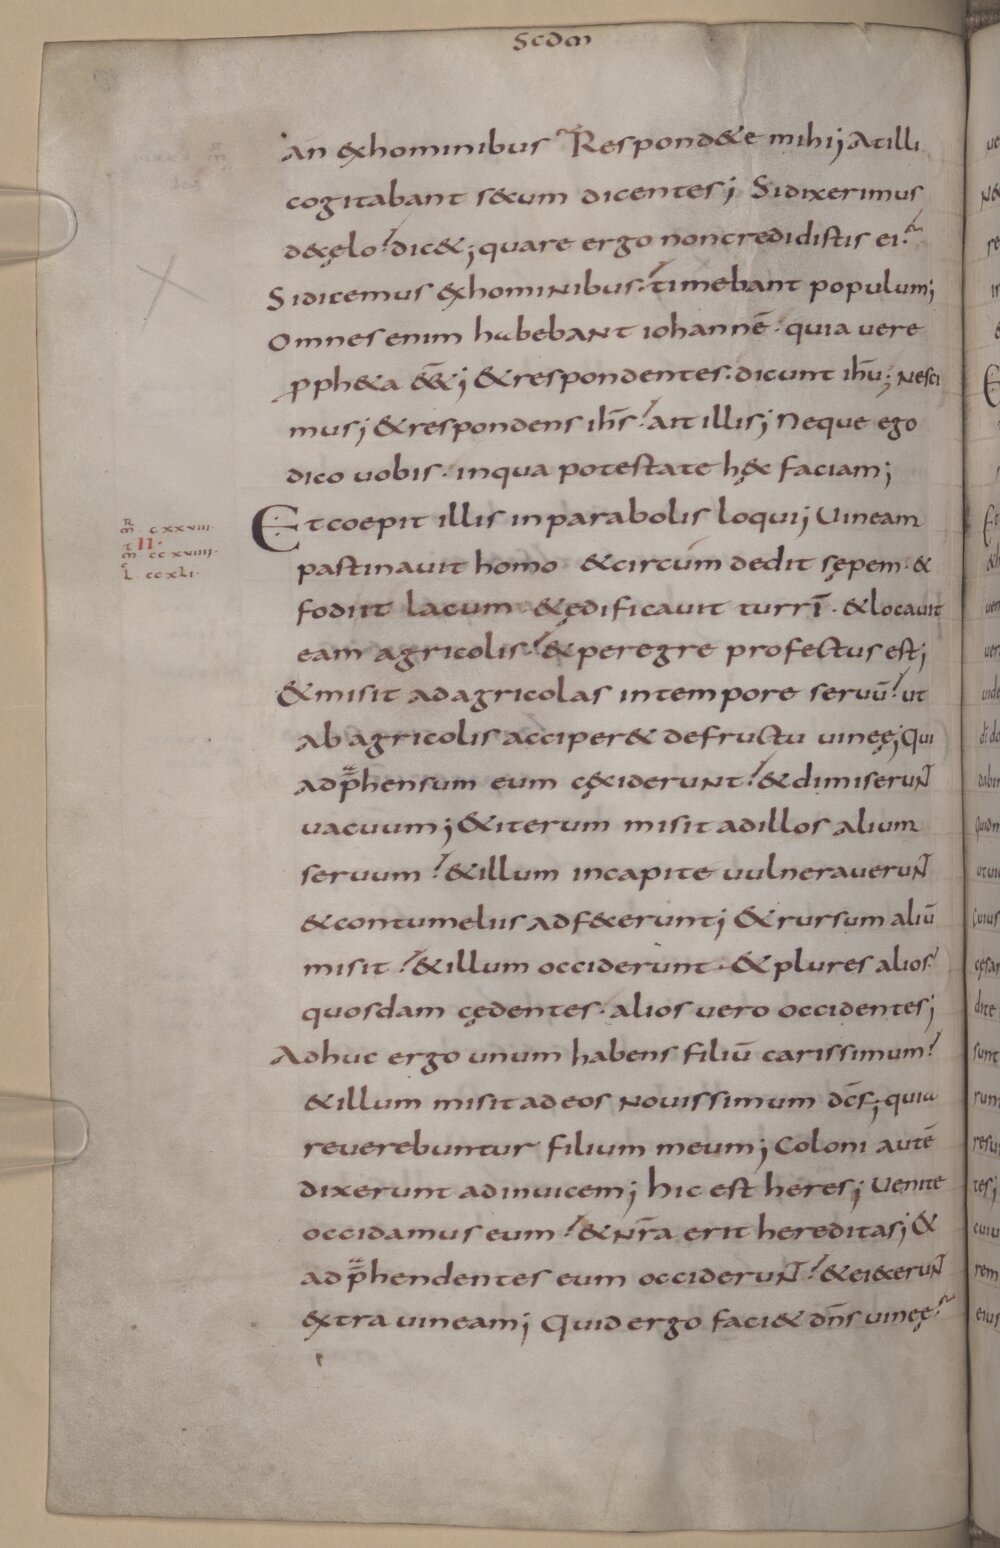 Scdm
an exhominibus Respond&e mihi; Atilli
cogitabant s&cum dicentes; Sidixerimus
d&cęlo? dic&; quare ergo noncredidistis ei?
Sidicemus exhominibus? timebant populum;
Omnes enim habebant iohannē· quia uere
proph&a ēē; &respondentes· dicunt ihū; Nesci
mus; &respondens ihs̄? ait illis; Neque ego
dico uobis· inqua potestate hęc faciam;
R
m̄ · cxxviii·
II·
m̄ ccxviiii·
L · ccxli·
Et coepit illis inparabolis loqui; Uineam
pastinauit homo &circum dedit sępem· &
fodiit lacum· &ędificauit turrī· &locauit
eam agricolis? &peregre profectus est;
&misit adagricolas intempore seruū? ut
ab agricolis acciper& defructu uineę; Qui
adp̄hensum eum cęciderunt? &dimiserunt
uacuum; &iterum misit adillos alium
seruum? &illum incapite uulnerauerunt
&contumeliis adfecerunt; &rursum aliū
misit? &illum occiderunt· &plures alios?
quosdam cędentes· alios uero occidentes;
Adhuc ergo unum habens filiū carissimum?
&illum misit adeos nouissimum dc̄s; quia
reuerebuntur filium meum; Coloni autē
dixerunt adinuicem; hic est heres; Uenite
occidamus eum? &nr̄a erit hereditas; &
adp̄hendentes eum occiderunt? &eiecerunt
extra uineam; Quid ergo faci& dn̄s uineę?